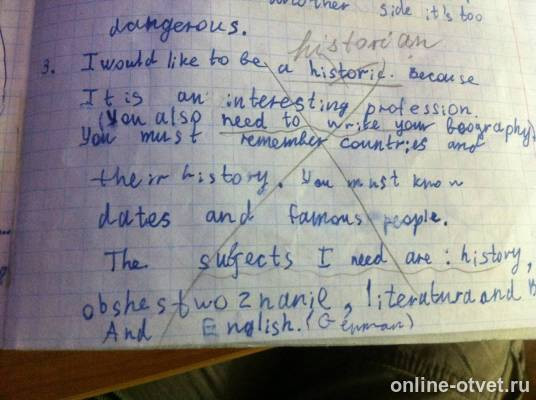 another side it's too
dangerous.
historian
3. I would like to be a historic. Because
It is an interesting profession.
(You also need to write your beography)
You must remember countries and
their history. You must know
dates and famous people.
The subjects I need are : history,
obshestwoznanie, literatura and
And English. (German)
online-otvet.ru